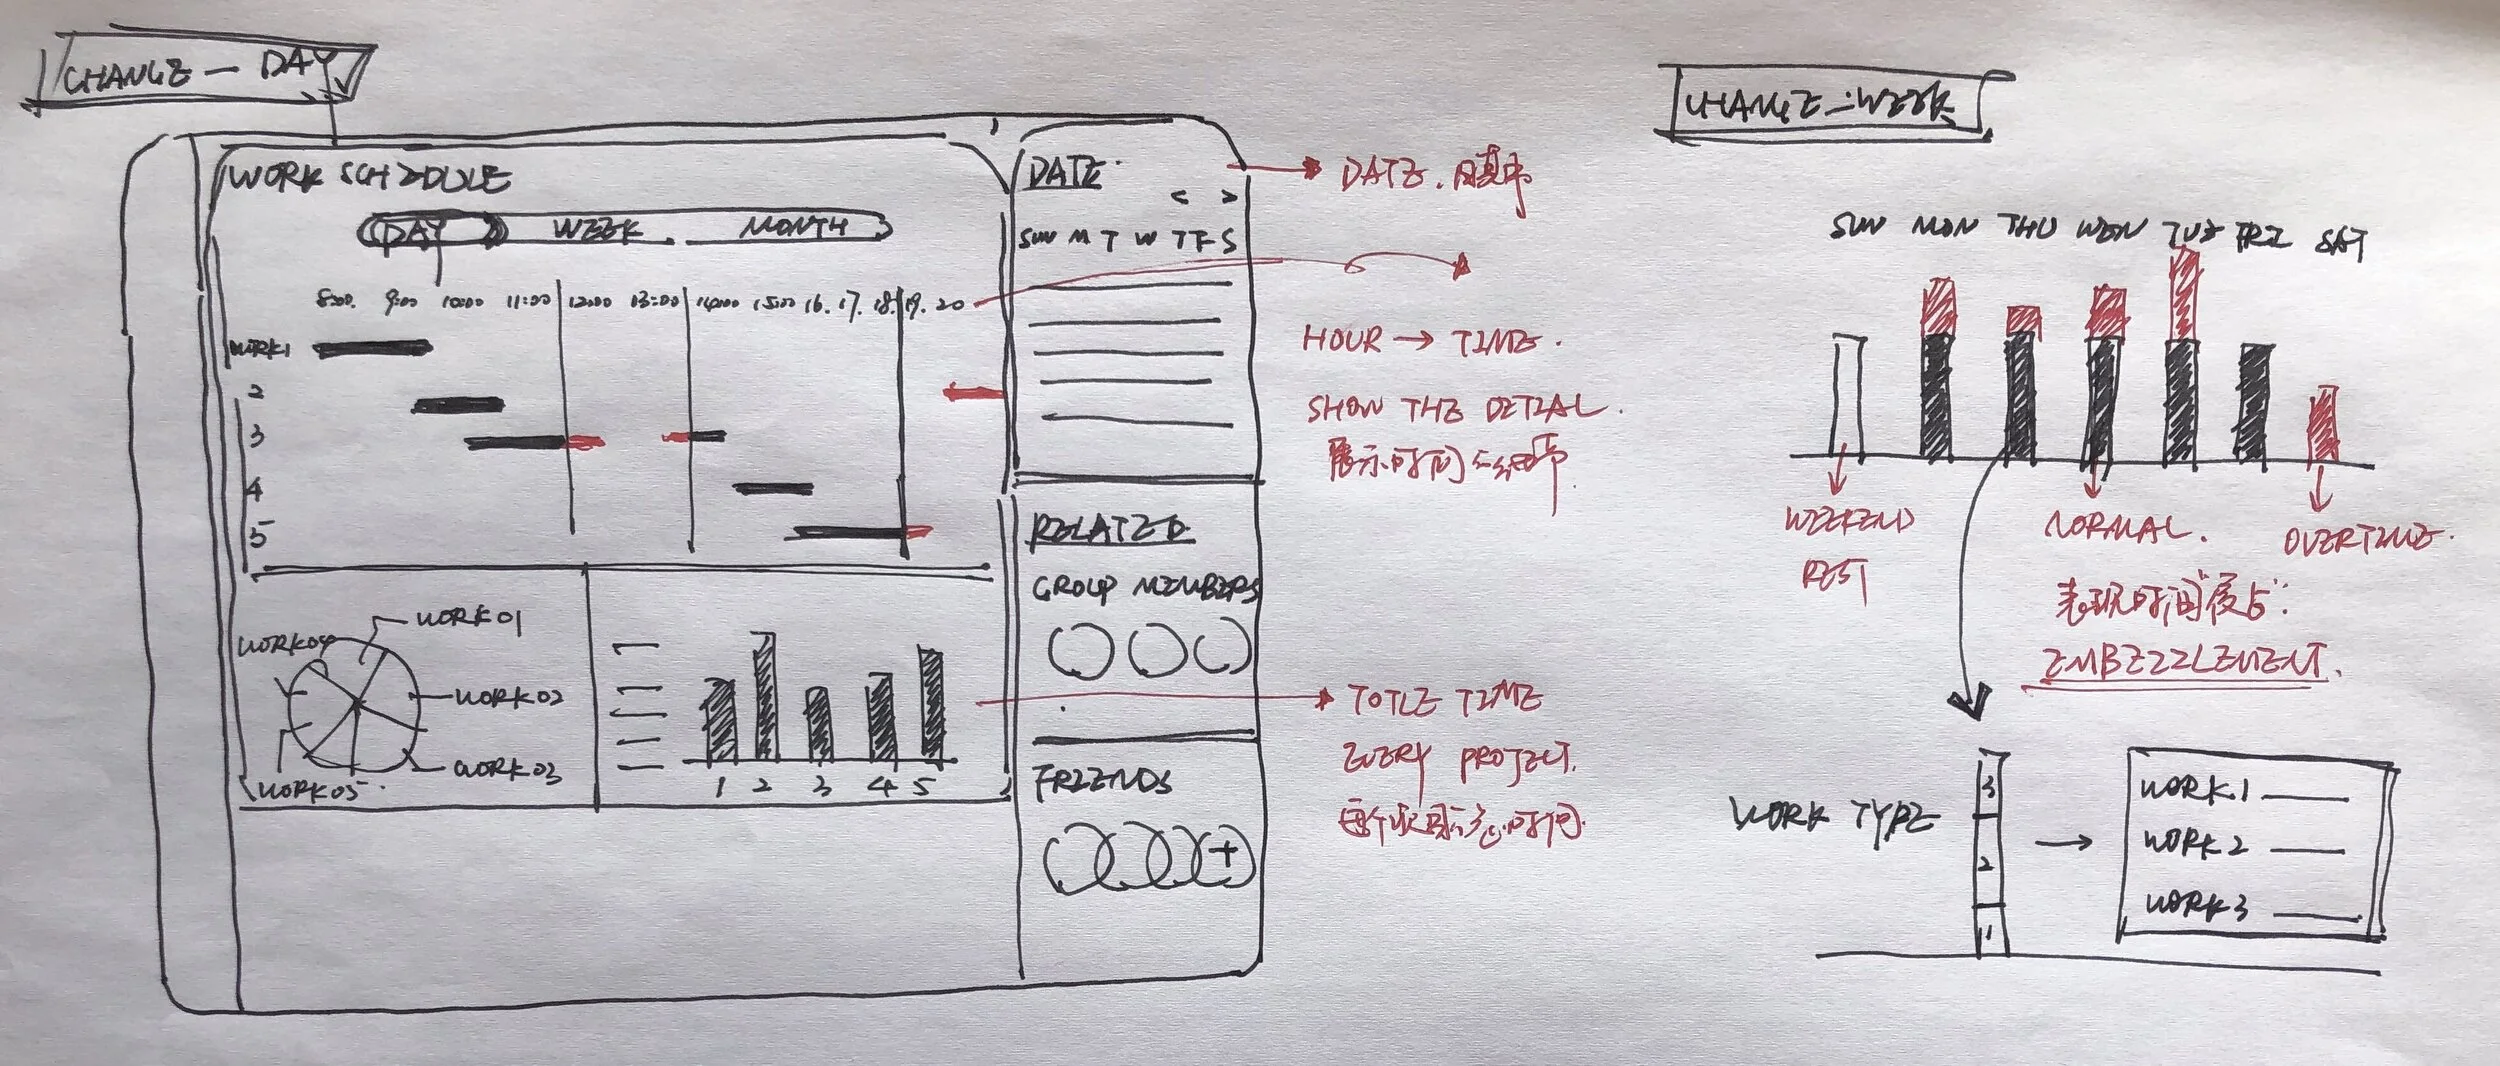 CHANGE — DAY
WORK SCHEDULE
DAY WEEK MONTH
8:00. 9:00 10:00 11:00 12:00 13:00 14:00 15:00 16. 17. 18. 19. 20
WORK1
2
3
4
5
WORK01
WORK02
WORK03
WORK04
WORK05.
1 2 3 4 5
DATE.
< >
SUN M T W T F S
RELATED
GROUP MEMBERS
FRIENDS
+
DATE.
HOUR → TIME.
SHOW THE DETIAL.
展示时间的细节.
TOTLE TIME
EVERY PROJECT.
CHANGE — WEEK
SUN MON THU WEN TUE FRI SAT
WEEKEND
REST
NORMAL.
OVERTIME.
表现时间"侵占":
EMBEZZLEMENT.
WORK TYPE
3
2
1
WORK.1
WORK2
WORK3